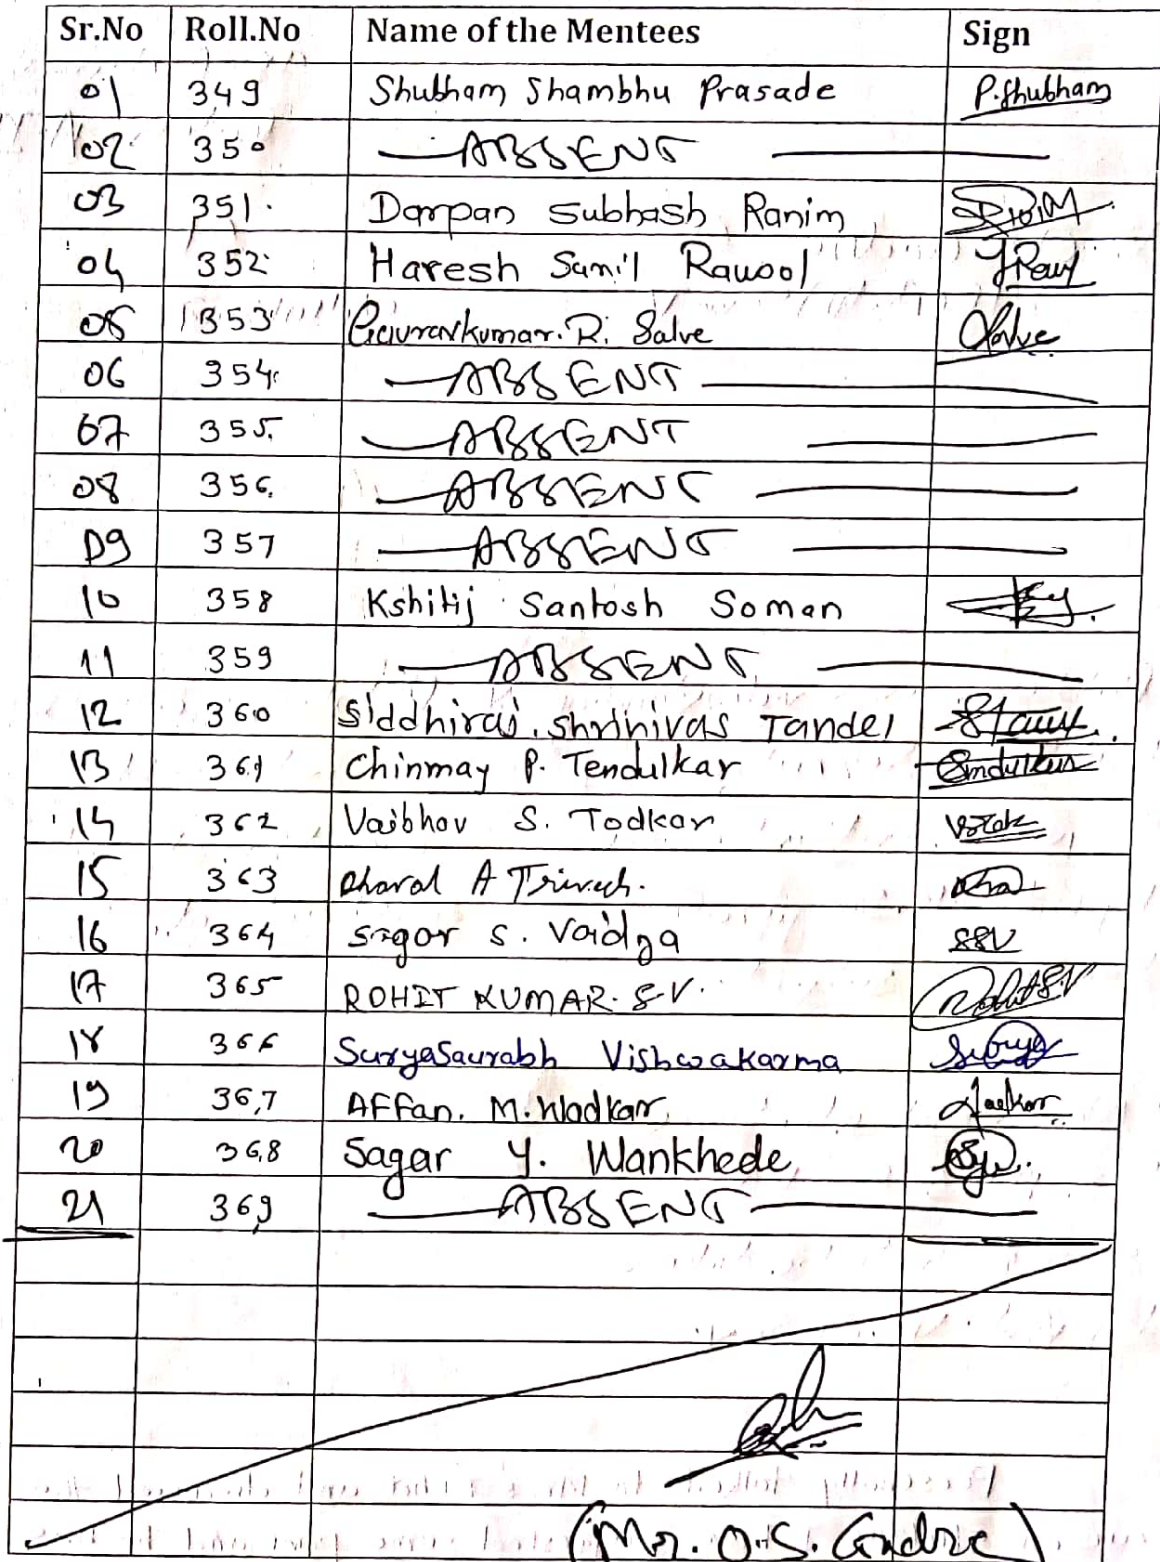 Sr.No Roll.No Name of the Mentees Sign
01 349 Shubham Shambhu Prasade P.Shubham
02 350 ABSENT
03 351. Darpan Subhash Ranim
04 352 Haresh Sunil Rawool
05 353 Gauravkumar. R. Salve Salve
06 354 ABSENT
07 355. ABSENT
08 356. ABSENT
09 357 ABSENT
10 358 Kshitij Santosh Soman
11 359 ABSENT
12 360 Siddhiraj. Shrinivas Tandel
13 361 Chinmay P. Tendulkar
14 362 Vaibhav S. Todkar
15 363 A
16 364 Sagar S. Vaidya SSV
17 365 ROHIT KUMAR. S.V. Rohit S.V
18 366 SuryaSaurabh Vishwakarma Surya
19 367 AFFan. M. Wadkar
20 368 Sagar Y. Wankhede
21 369 ABSENT
(Mr. O.S.